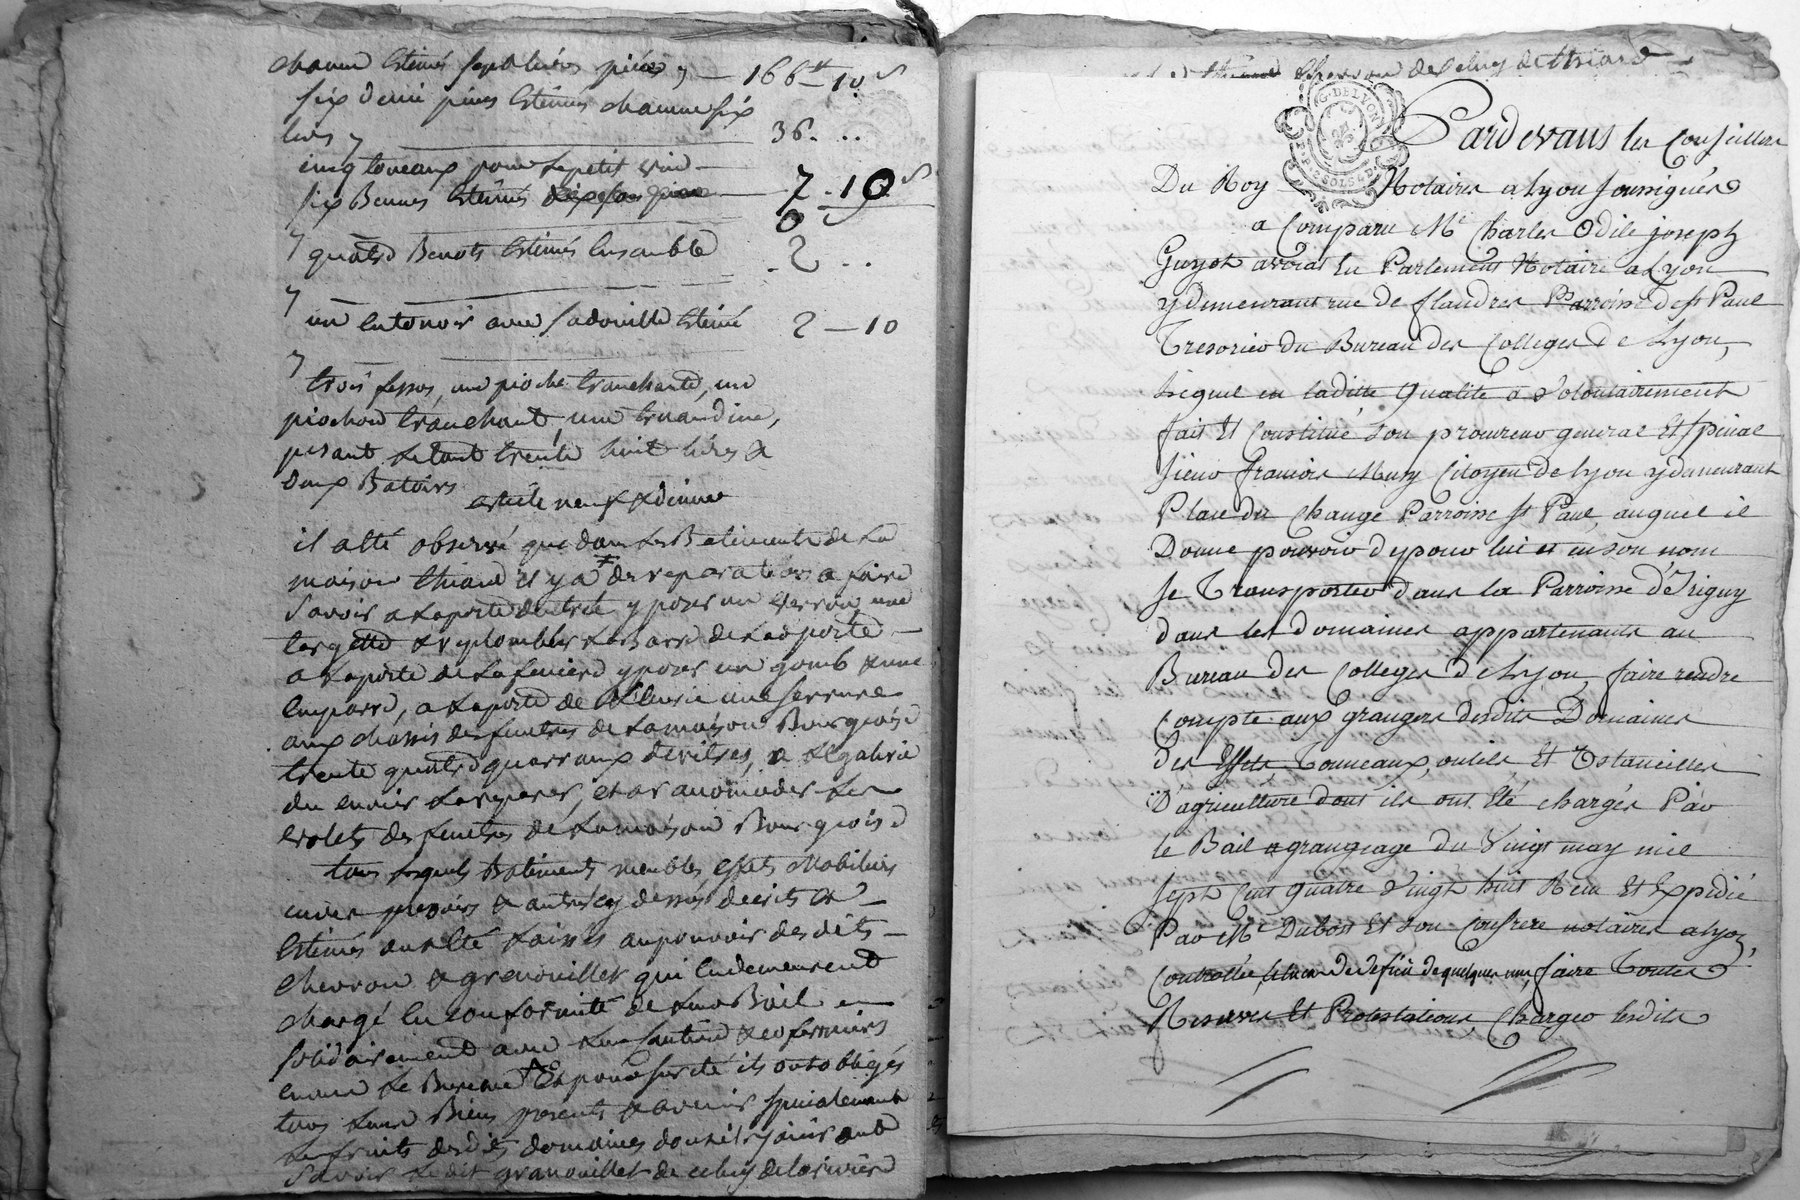 chacun estimés sept livres pièces 7 — 166# — 10s
six demi pieces estimés chacune six
livres 7 36. ..
cinq toneaux pour le petit vin
six Bennes estimés 7 - 10s
7 quatre Benots estimés ensemble . 2 ..
7 un entonoir avec sa douille estimé 2 — 10
7 trois fessos, une pioche tranchante, un
piochon tranchant, une truandine,
pesant le tout trente huit livres &
deux Batoirs
article neuf &dernier
il a été observé que dans les Batiments de la
maison thiard il y a des reparations a faire
Savoir a la porte dentrée y poser un verroux une
targette & replomber la Barre de la porte —
a la porte de la feniere y poser un gomb & une
emparre, a la porte de lecurie une serrure
aux chassis des fenetres de la maison Bourgeoise
trente quatre quarraux de vitres, a
du cuvier la reparer, et a racomoder les
volets des fenetres de la maison Bourgeoise
tous lesquels Batiments meubles effets mobiliers
cuves pressoirs & autres cy dessus decrits & —
estimés ont été laissés au pouvoir des dits —
chevron & grenouillet qui en demeurent
chargé en conformité de leur Bail
solidairement avec leur caution & cofermiers
envers le Bureau Et pour sureté ils ont obligés
tous leurs Biens presents & avenir spécialement
les fruits desdits domaines dont ils jouissent
savoir ledit granouillet de celuy de lariviere
chevron de celuy de thiard
G. DE LYON
Pardevant les Conseillers
Du Roy Notaires a Lyon soussignés
a Comparu Me Charles Odile joseph
Guyot avocat En Parlement Notaire a Lyon
y demeurant rue de flandres Parroisse de St Paul
Tresorier du Bureau des Colleges de Lyon,
Lequel en laditte Qualité a Volontairement
fait Et Constitué son procureur general Et special
sieur francois Muzy Citoyen de Lyon y demeurant
Place du Change Parroisse St Paul, auquel il
Donne pouvoir de pour lui et en son nom
se Transporter dans la Parroisse d'Irigny
dans les domaines appartenants au
Bureau des Colleges de Lyon, faire rendre
Compte aux grangers desdits Domaines
des Effets, Tonneaux, outils, Et Ustancilles
D'agriculture dont ils ont Eté chargés Par
le Bail a grangeage du Vingt may mil
sept Cent Quatre Vingt huit Reçu Et Expedié
Par Me Dubost Et son Confrere notaires a Lyon,
Controllée, et en cas de deficit de quelques uns, faire Toutes
Reserves Et Protestations, Charger lesdits